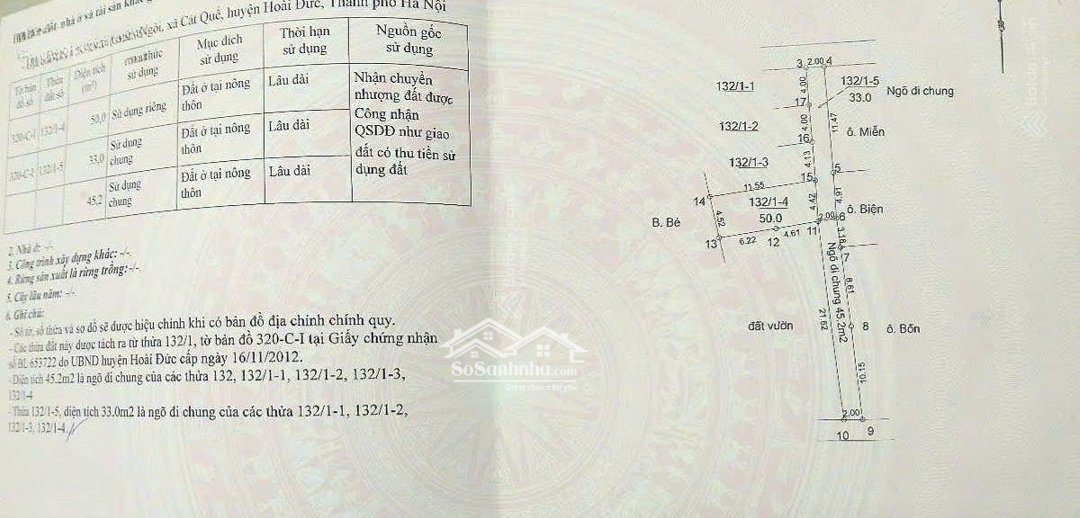 đất, nhà ở và tài sản khác
Ngòi, xã Cát Quế, huyện Hoài Đức, Thành phố Hà Nội
Tờ bản đồ số
Thửa đất số
Diện tích (m²)
thức sử dụng
Mục đích sử dụng
Thời hạn sử dụng
Nguồn gốc sử dụng
320-C-I
132/1-4
50,0
Sử dụng riêng
Đất ở tại nông thôn
Lâu dài
Nhận chuyển nhượng đất được Công nhận QSDĐ như giao đất có thu tiền sử dụng đất
320-C-I
132/1-5
33,0
Sử dụng chung
Đất ở tại nông thôn
Lâu dài
45,2
Sử dụng chung
Đất ở tại nông thôn
Lâu dài
2. Nhà ở: -/-.
3. Công trình xây dựng khác: -/-.
4. Rừng sản xuất là rừng trồng: -/-.
5. Cây lâu năm: -/-.
6. Ghi chú:
- Số tờ, số thửa và sơ đồ sẽ được hiệu chỉnh khi có bản đồ địa chính chính quy.
- Các thửa đất này được tách ra từ thửa 132/1, tờ bản đồ 320-C-I tại Giấy chứng nhận
số BL 653722 do UBND huyện Hoài Đức cấp ngày 16/11/2012.
- Diện tích 45.2m2 là ngõ đi chung của các thửa 132, 132/1-1, 132/1-2, 132/1-3,
132/1-4
- Thửa 132/1-5, diện tích 33.0m2 là ngõ đi chung của các thửa 132/1-1, 132/1-2,
132/1-3, 132/1-4.
3
2.00
4
132/1-1
4.00
132/1-5
33.0
Ngõ đi chung
17
132/1-2
4.00
11.47
ô. Miễn
16
132/1-3
4.13
5
15
11.55
14
132/1-4
50.0
4.42
4.91
ô. Biện
B. Bé
4.52
2.00
6
13
6.22
12
4.61
11
3.18
7
Ngõ đi chung 45.2m2
8.61
21.62
đất vườn
8
ô. Bốn
10.15
2.00
10
9
SoSanhnha.com